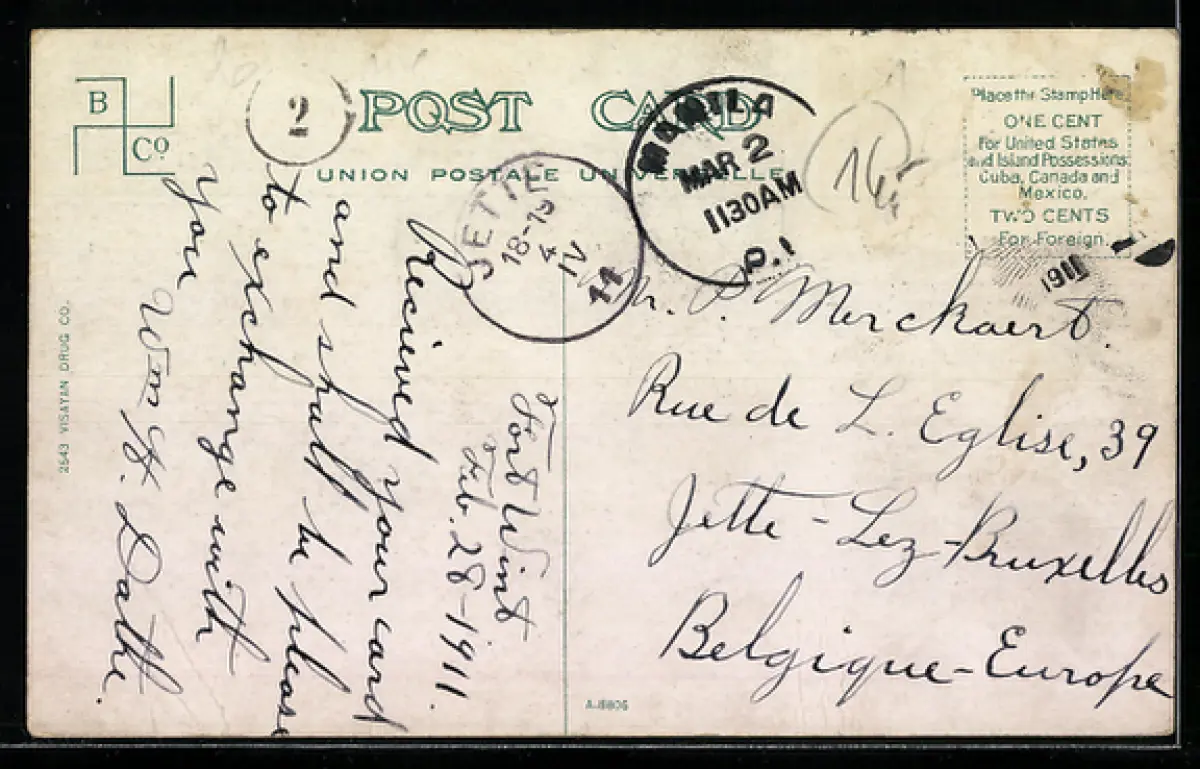 B
Co
2
POST CARD
UNION POSTALE UNIVERSELLE
MANILA
MAR 2
1130AM
P.I.
1911
JETTE
18-19
4
IV
11
Place the Stamp Here
ONE CENT
For United States
and Island Possessions,
Cuba, Canada and
Mexico.
TWO CENTS
For Foreign.
Fort Wint
Feb. 28-1911.
Received your card
and shall be please
to exchange with
you
Wm H. Datte.
Mr. P. Merckaert.
Rue de L. Eglise, 39
Jette-Lez-Bruxelles
Belgique-Europe
2643 VISAYAN DRUG CO.
A-8806